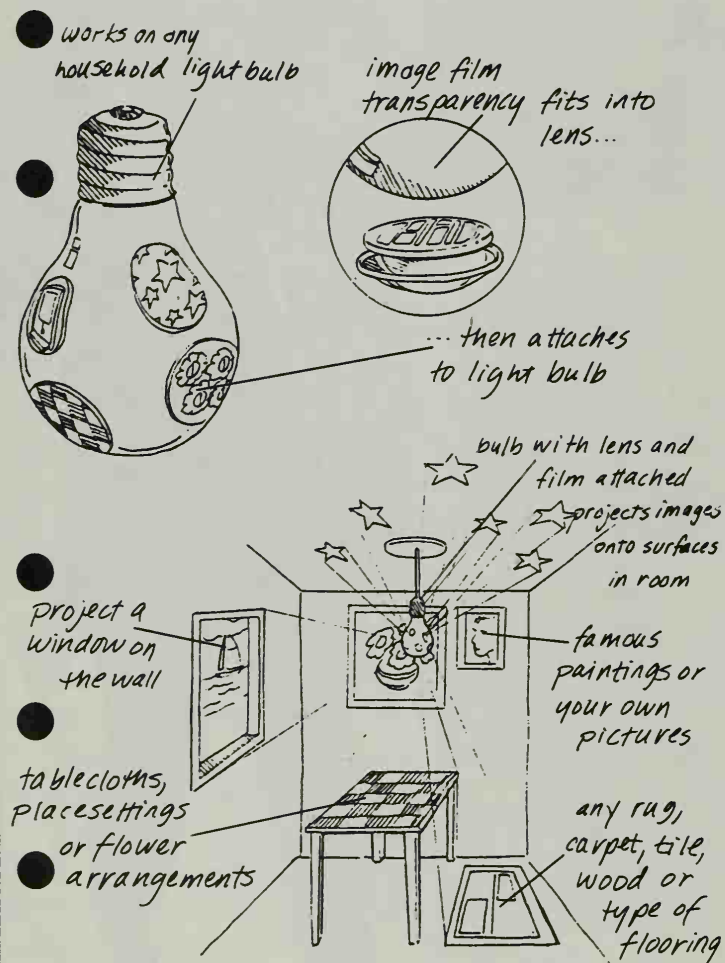 works on any
household light bulb
image film
transparency fits into
lens...
... then attaches
to light bulb
bulb with lens and
film attached
projects images
onto surfaces
in room
project a
window on
the wall
famous
paintings or
your own
pictures
tablecloths,
placesettings
or flower
arrangements
any rug,
carpet, tile,
wood or
type of
flooring